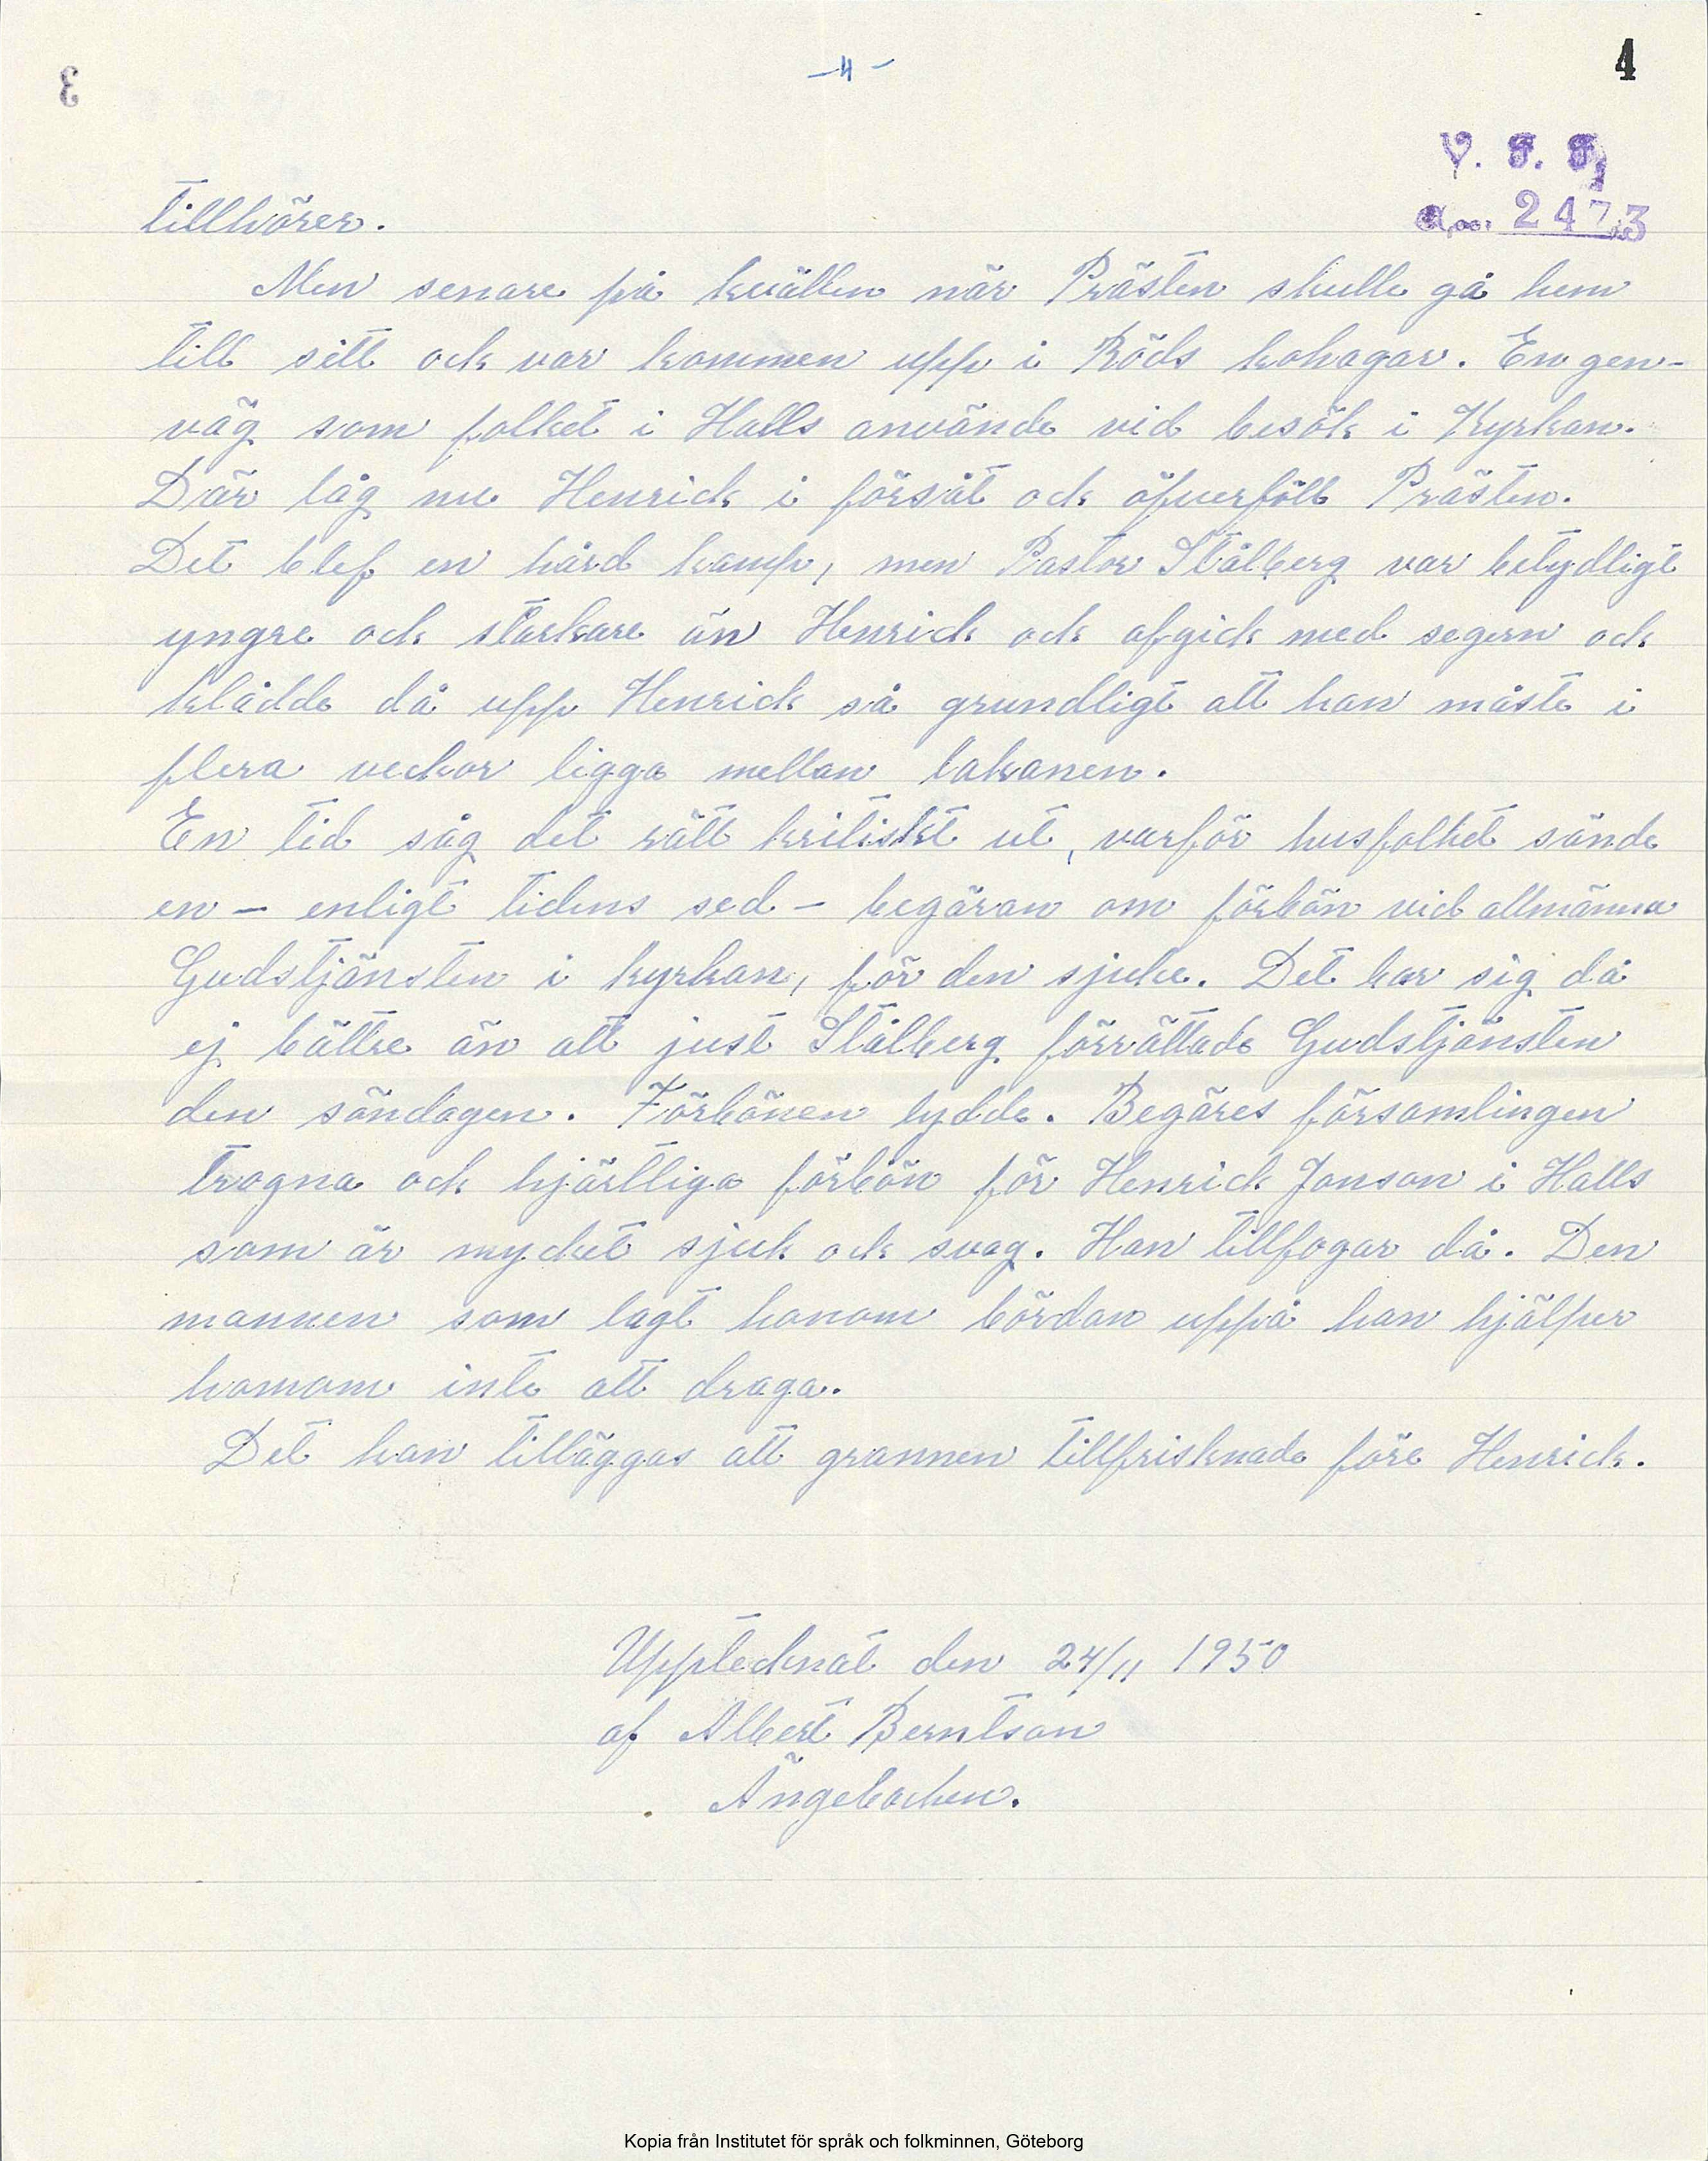 3
-4-
4
V. F. F.
acc. 2473
tillhörer.
Men senare på kvällen när Prästen skulle gå hem
till sitt och var kommen upp i Röds kohagar. En gen-
väg som folket i Halls använde vid besök i Kyrkan.
Där låg nu Henrick i försåt och öfverföll Prästen.
Det blef en hård kamp, men Pastor Stålberg var betydligt
yngre och starkare än Henrick och afgick med segern och
klådde då upp Henrick så grundligt att han måste i
flera veckor ligga mellan lakanen.
En tid såg det rätt kritiskt ut, varför husfolket sände
en - enligt tidens sed - begäran om förbön vid allmänna
Gudstjänsten i kyrkan, för den sjuke. Det bar sig då
ej bättre än att just Stålberg förrättade Gudstjänsten
den söndagen. Förbönen lydde. Begäres församlingen
trogna och hjärtliga förbön för Henrick Jonson i Halls
som är mycket sjuk och svag. Han tillfogar då. Den
mannen som lagt honom bördan uppå han hjälper
honom inte att draga.
Det kan tilläggas att grannen tillfrisknade före Henrick.
Upptecknat den 24/11 1950
af Albert Berntson
Ängebacken.
Kopia från Institutet för språk och folkminnen, Göteborg